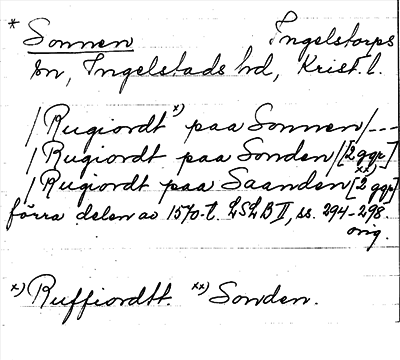 * Sonnen Ingelstorps
sn, Ingelstads hd, Krist. l.
/Rugiordt x) paa Sonnen/---
/Rugiordt paa Sonden/[2 ggr]
/Rugiordt paa Saanden xx) [2 ggr]
förra delen av 1570-t. LSLB II, ss. 294-298
orig.
x) Ruffiordtt. xx) Sonden.